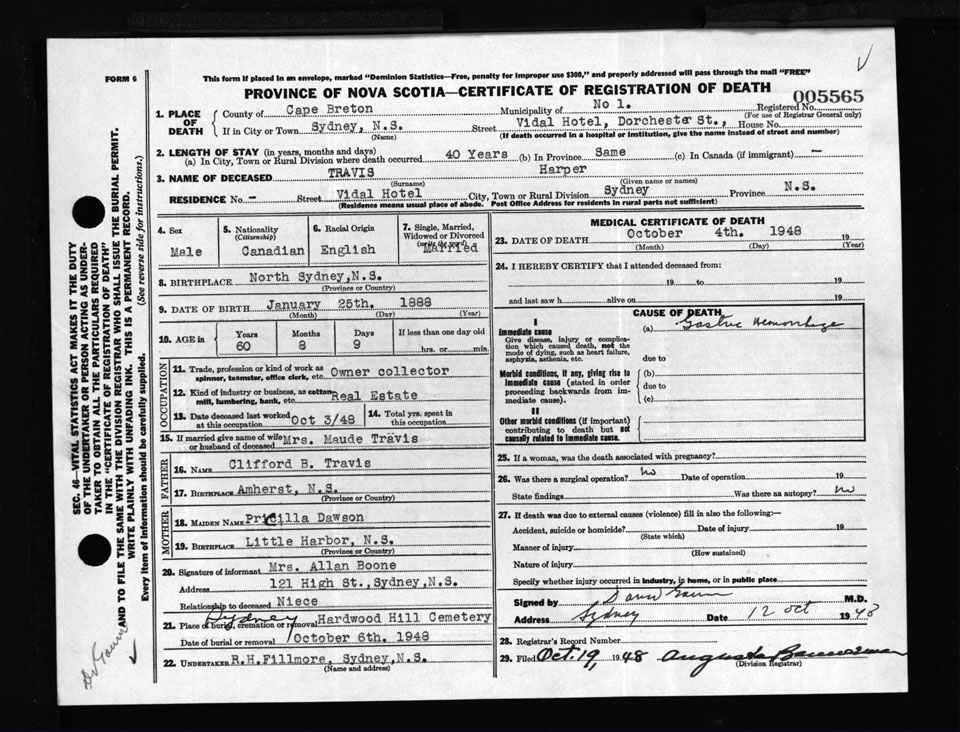 FORM 6
This form if placed in an envelope, marked "Dominion Statistics—Free, penalty for improper use $300," and properly addressed will pass through the mail "FREE"
PROVINCE OF NOVA SCOTIA—CERTIFICATE OF REGISTRATION OF DEATH
005565
1. PLACE OF DEATH
County of Cape Breton Municipality of No 1. Registered No.
(For use of Registrar General only)
If in City or Town Sydney, N.S. Street Vidal Hotel, Dorchester St., House No.
(Name) (If death occurred in a hospital or institution, give the name instead of street and number)
2. LENGTH OF STAY (in years, months and days)
(a) In City, Town or Rural Division where death occurred 40 Years (b) In Province Same (c) In Canada (if immigrant) —
3. NAME OF DECEASED TRAVIS Harper
(Surname) (Given name or names)
RESIDENCE No - Street Vidal Hotel City, Town or Rural Division Sydney Province N.S.
(Residence means usual place of abode. Post Office Address for residents in rural parts not sufficient)
4. Sex Male
5. Nationality (Citizenship) Canadian
6. Racial Origin English
7. Single, Married, Widowed or Divorced (write the word) Married
8. BIRTHPLACE North Sydney, N.S.
(Province or Country)
9. DATE OF BIRTH January 25th. 1888
(Month) (Day) (Year)
10. AGE in Years 60 Months 8 Days 9 If less than one day old hrs. or min.
OCCUPATION
11. Trade, profession or kind of work as spinner, teamster, office clerk, etc. Owner collector
12. Kind of industry or business, as cotton mill, lumbering, bank, etc. Real Estate
13. Date deceased last worked at this occupation Oct 3/48
14. Total yrs. spent in this occupation
15. If married give name of wife or husband of deceased Mrs. Maude Travis
FATHER
16. NAME Clifford B. Travis
17. BIRTHPLACE Amherst, N.S.
(Province or Country)
MOTHER
18. MAIDEN NAME Pricilla Dawson
19. BIRTHPLACE Little Harbor, N.S.
(Province or Country)
20. Signature of informant Mrs. Allan Boone
Address 121 High St., Sydney, N.S.
Relationship to deceased Niece
21. Place of burial, cremation or removal Sydney Hardwood Hill Cemetery
Date of burial or removal October 6th. 1948
22. UNDERTAKER R.H.Fillmore, Sydney, N.S.
(Name and address)
MEDICAL CERTIFICATE OF DEATH
23. DATE OF DEATH October 4th. 1948 19
(Month) (Day) (Year)
24. I HEREBY CERTIFY that I attended deceased from:
19 to 19
and last saw h alive on 19
CAUSE OF DEATH
I
Immediate cause (a) Gastric Hemorrhage
Give disease, injury or complication which caused death, not the mode of dying, such as heart failure, asphyxia, asthenia, etc.
due to
Morbid conditions, if any, giving rise to immediate cause (stated in order proceeding backwards from immediate cause).
(b)
due to
(c)
II
Other morbid conditions (if important) contributing to death but not causally related to immediate cause.
25. If a woman, was the death associated with pregnancy?
26. Was there a surgical operation? no Date of operation 19
State findings Was there an autopsy? no
27. If death was due to external causes (violence) fill in also the following:—
Accident, suicide or homicide? Date of injury 19
(State which)
Manner of injury
(How sustained)
Nature of injury
Specify whether injury occurred in industry, in home, or in public place
Signed by M.D.
Address Sydney Date 12 Oct 1948
28. Registrar's Record Number
29. Filed Oct. 19 1948 Augusta Bannerman
(Division Registrar)
SEC. 46—VITAL STATISTICS ACT MAKES IT THE DUTY
OF THE UNDERTAKER OR PERSON ACTING AS UNDER-
TAKER TO OBTAIN ALL THE PARTICULARS REQUIRED
IN THE "CERTIFICATE OF REGISTRATION OF DEATH"
AND TO FILE THE SAME WITH THE DIVISION REGISTRAR WHO SHALL ISSUE THE BURIAL PERMIT.
WRITE PLAINLY WITH UNFADING INK. THIS IS A PERMANENT RECORD.
Every item of information should be carefully supplied. (See reverse side for instructions.)